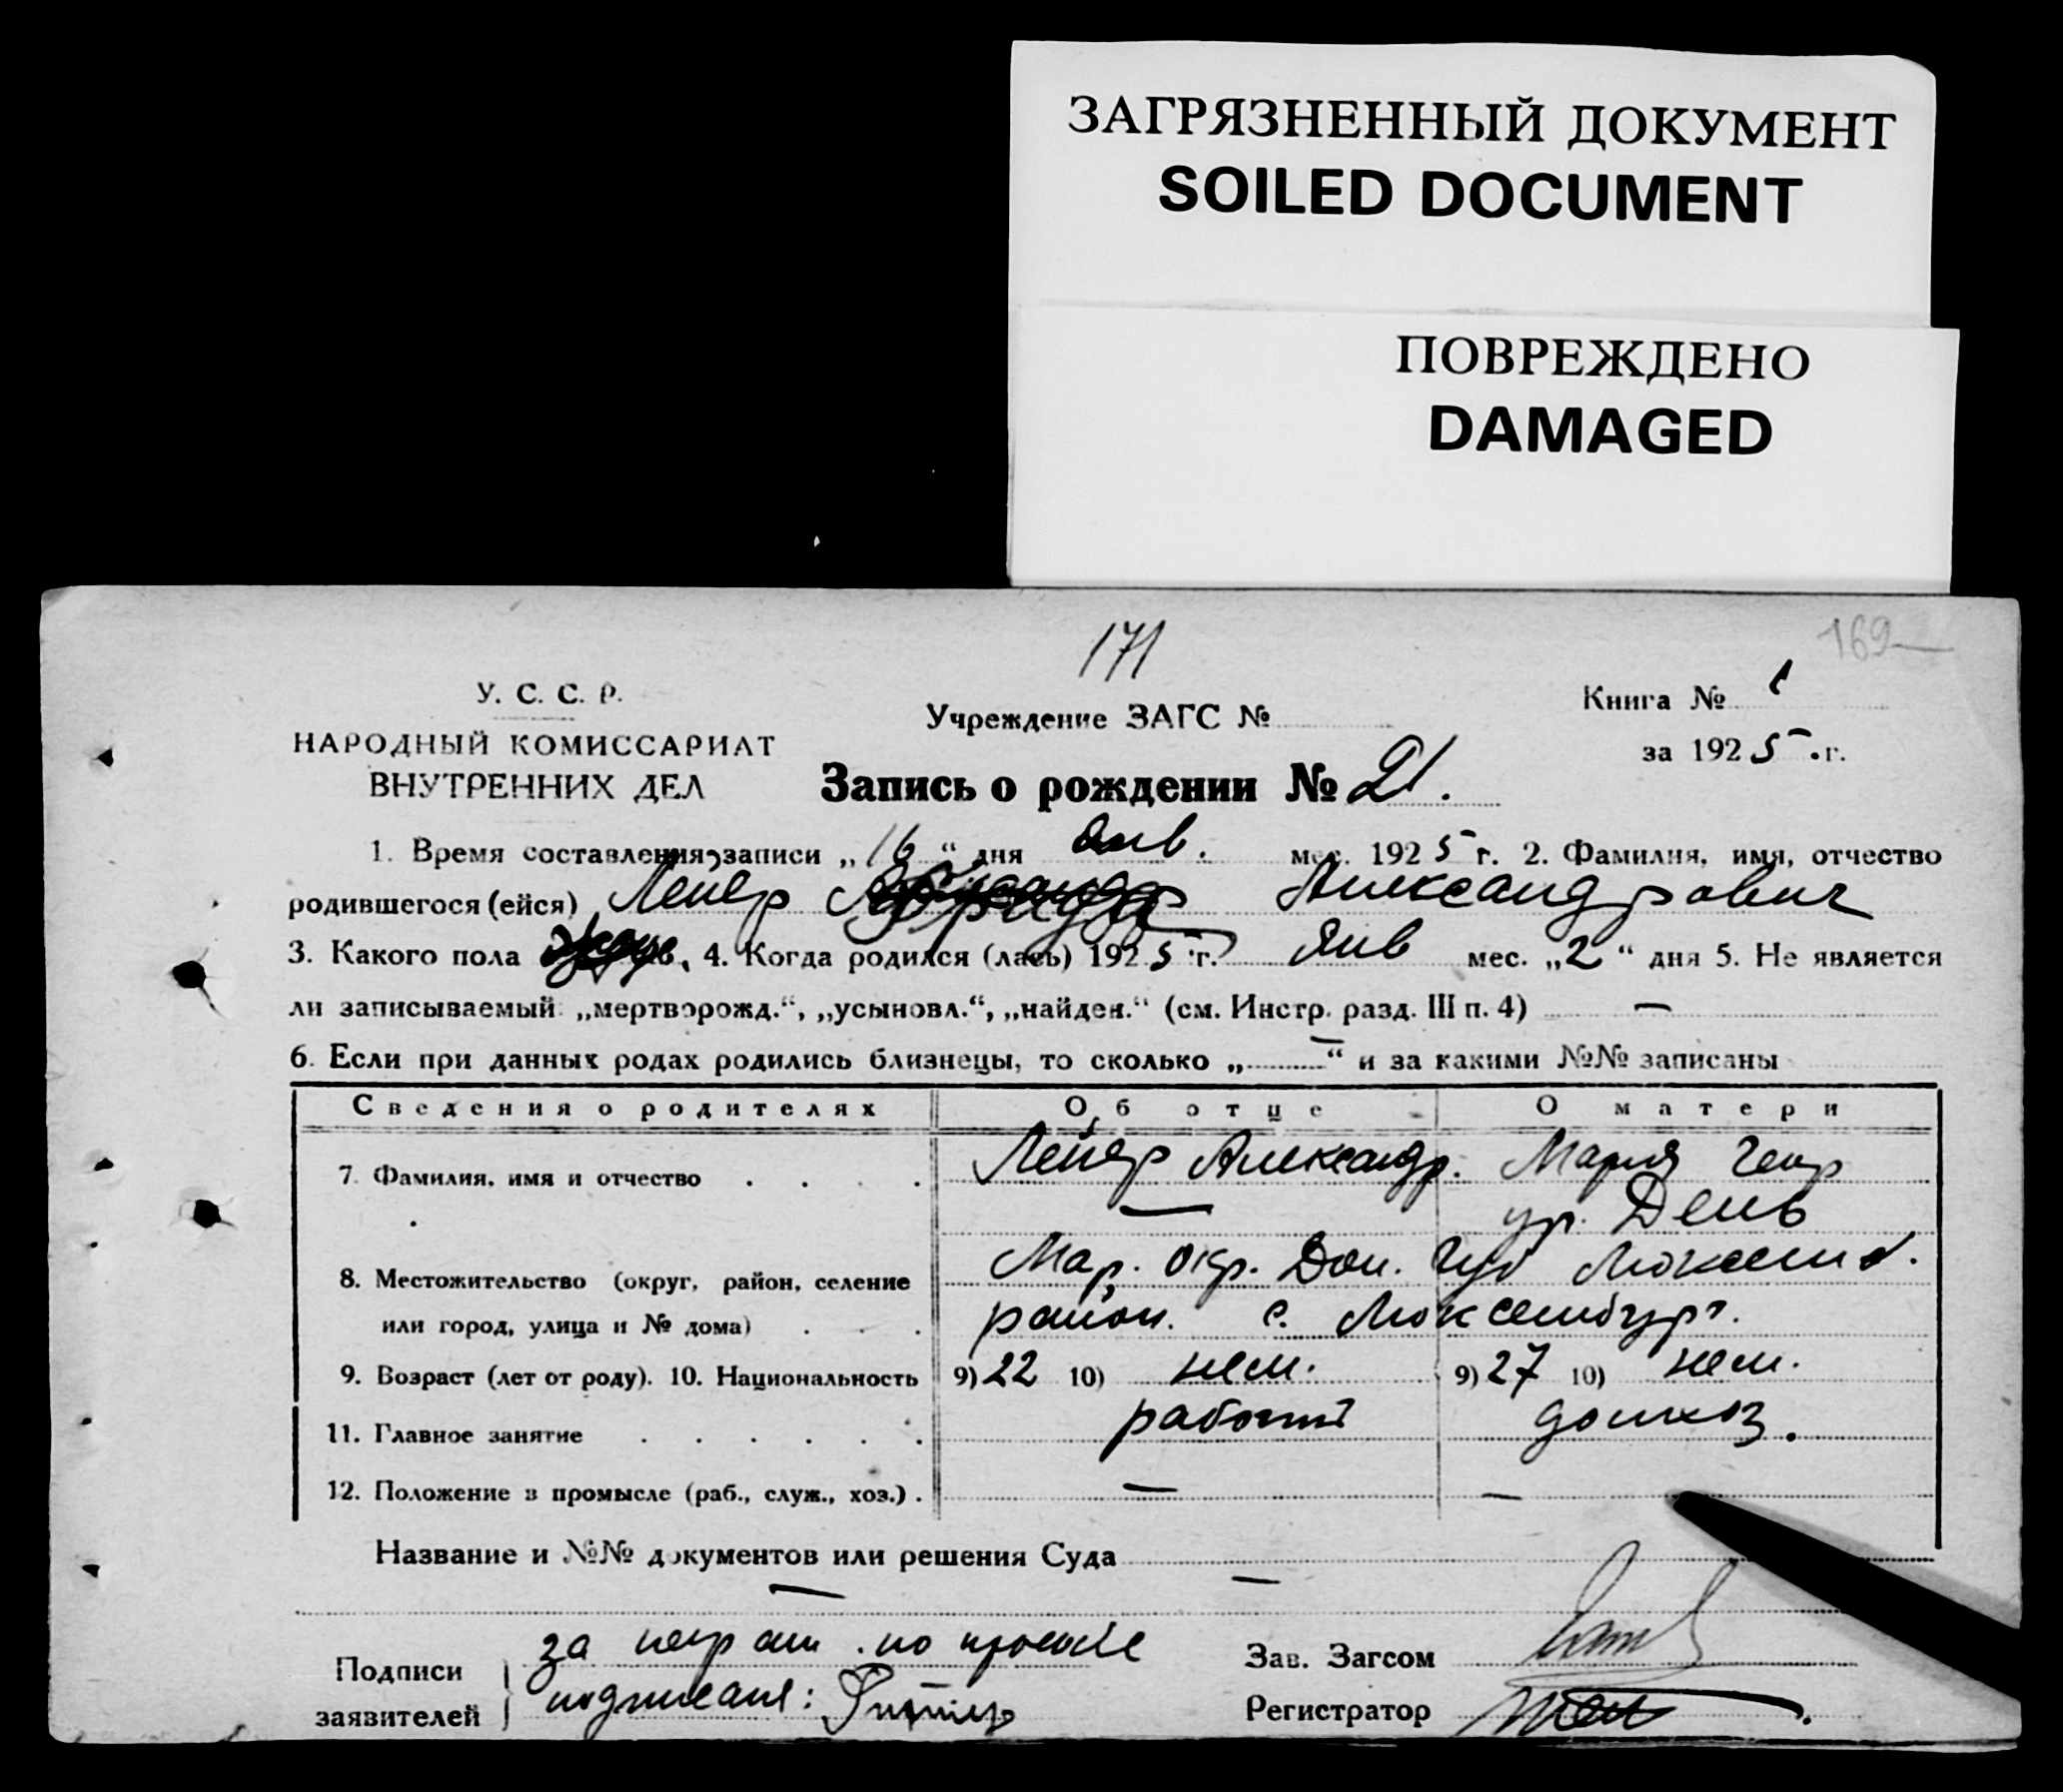 ЗАГРЯЗНЕННЫЙ ДОКУМЕНТ
SOILED DOCUMENT
ПОВРЕЖДЕНО
DAMAGED
171
169
У. С. С. Р.
НАРОДНЫЙ КОМИССАРИАТ
ВНУТРЕННИХ ДЕЛ
Учреждение ЗАГС №
Книга № 1
за 1925 г.
Запись о рождении № 21.
1. Время составления записи „16“ дня янв. мес. 1925 г. 2. Фамилия, имя, отчество
родившегося (ейся) Лейер Александрович
3. Какого пола 4. Когда родился (лась) 1925 г. янв мес. „2“ дня 5. Не является
ли записываемый: „мертворожд.“, „усыновл.“, „найден.“ (см. Инстр. разд. III п. 4) —
6. Если при данных родах родились близнецы, то сколько „—“ и за какими №№ записаны
Сведения о родителях Об отце О матери
7. Фамилия, имя и отчество Лейер Александр. Мария Генр
— ур. День
8. Местожительство (округ, район, селение Мар. окр. Дон. Губ Люксемб.
или город, улица и № дома) район. с. Люксембург.
9. Возраст (лет от роду). 10. Национальность 9) 22 10) нем. 9) 27 10) нем.
11. Главное занятие рабочий домхоз.
12. Положение в промысле (раб., служ., хоз.) — —
Название и №№ документов или решения Суда —
—
Подписи заявителей за неграм. по просьбе
подписался:
Зав. Загсом
Регистратор